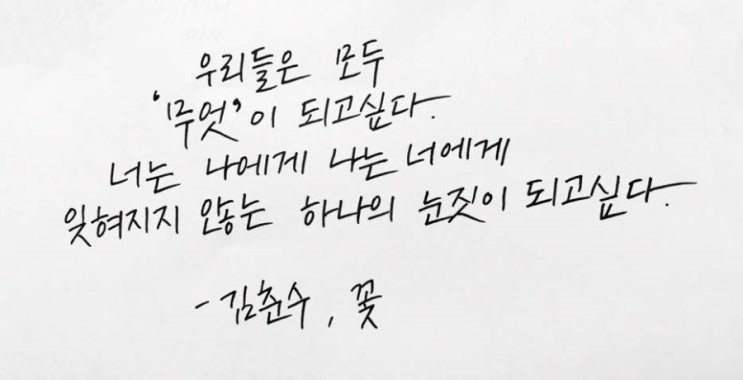 우리들은 모두
'무엇'이 되고싶다.
너는 나에게 나는 너에게
잊혀지지 않는 하나의 눈짓이 되고싶다.
- 김춘수, 꽃